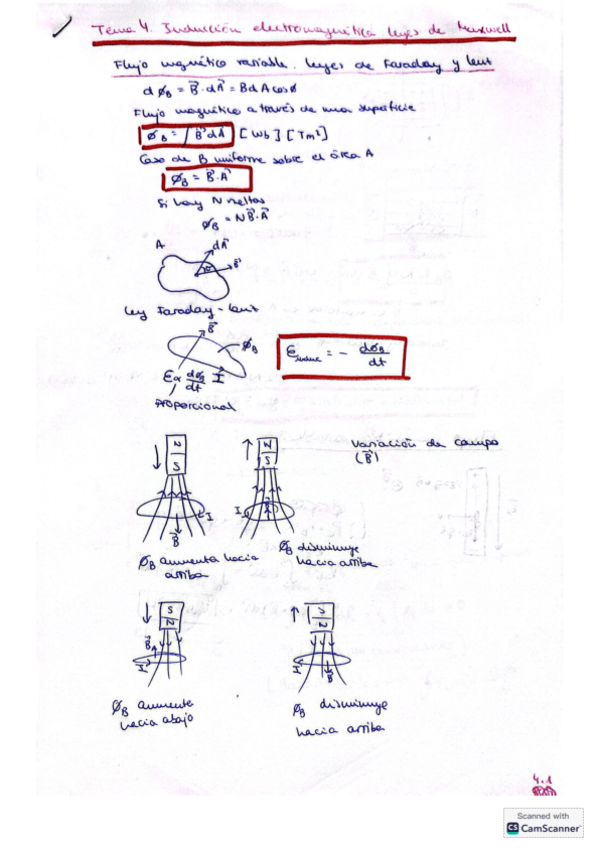 Tema 4. Inducción electromagnética leyes de Maxwell
Flujo magnético variable. Leyes de Faraday y Lenz
dΦB = B⃗·dA⃗ = BdA cosΦ
Flujo magnético a través de una superficie
ΦB = ∫B⃗dA⃗ [Wb] [Tm²]
Caso de B uniforme sobre el área A
ΦB = B⃗·A⃗
Si hay N vueltas
ΦB = NB⃗·A⃗
A dA⃗
B⃗
Ley Faraday-Lenz
B⃗
ΦB
Ɛ induc = - dΦB/dt
Ɛ α dΦB/dt I
proporcional
N N
S S
Variación de campo
(B⃗)
I I
B⃗
ΦB aumenta hacia
arriba
ΦB disminuye
hacia arriba
S S
N N
B⃗
I I
B⃗
ΦB aumenta
hacia abajo
ΦB disminuye
hacia arriba
4.1
Scanned with
CS CamScanner